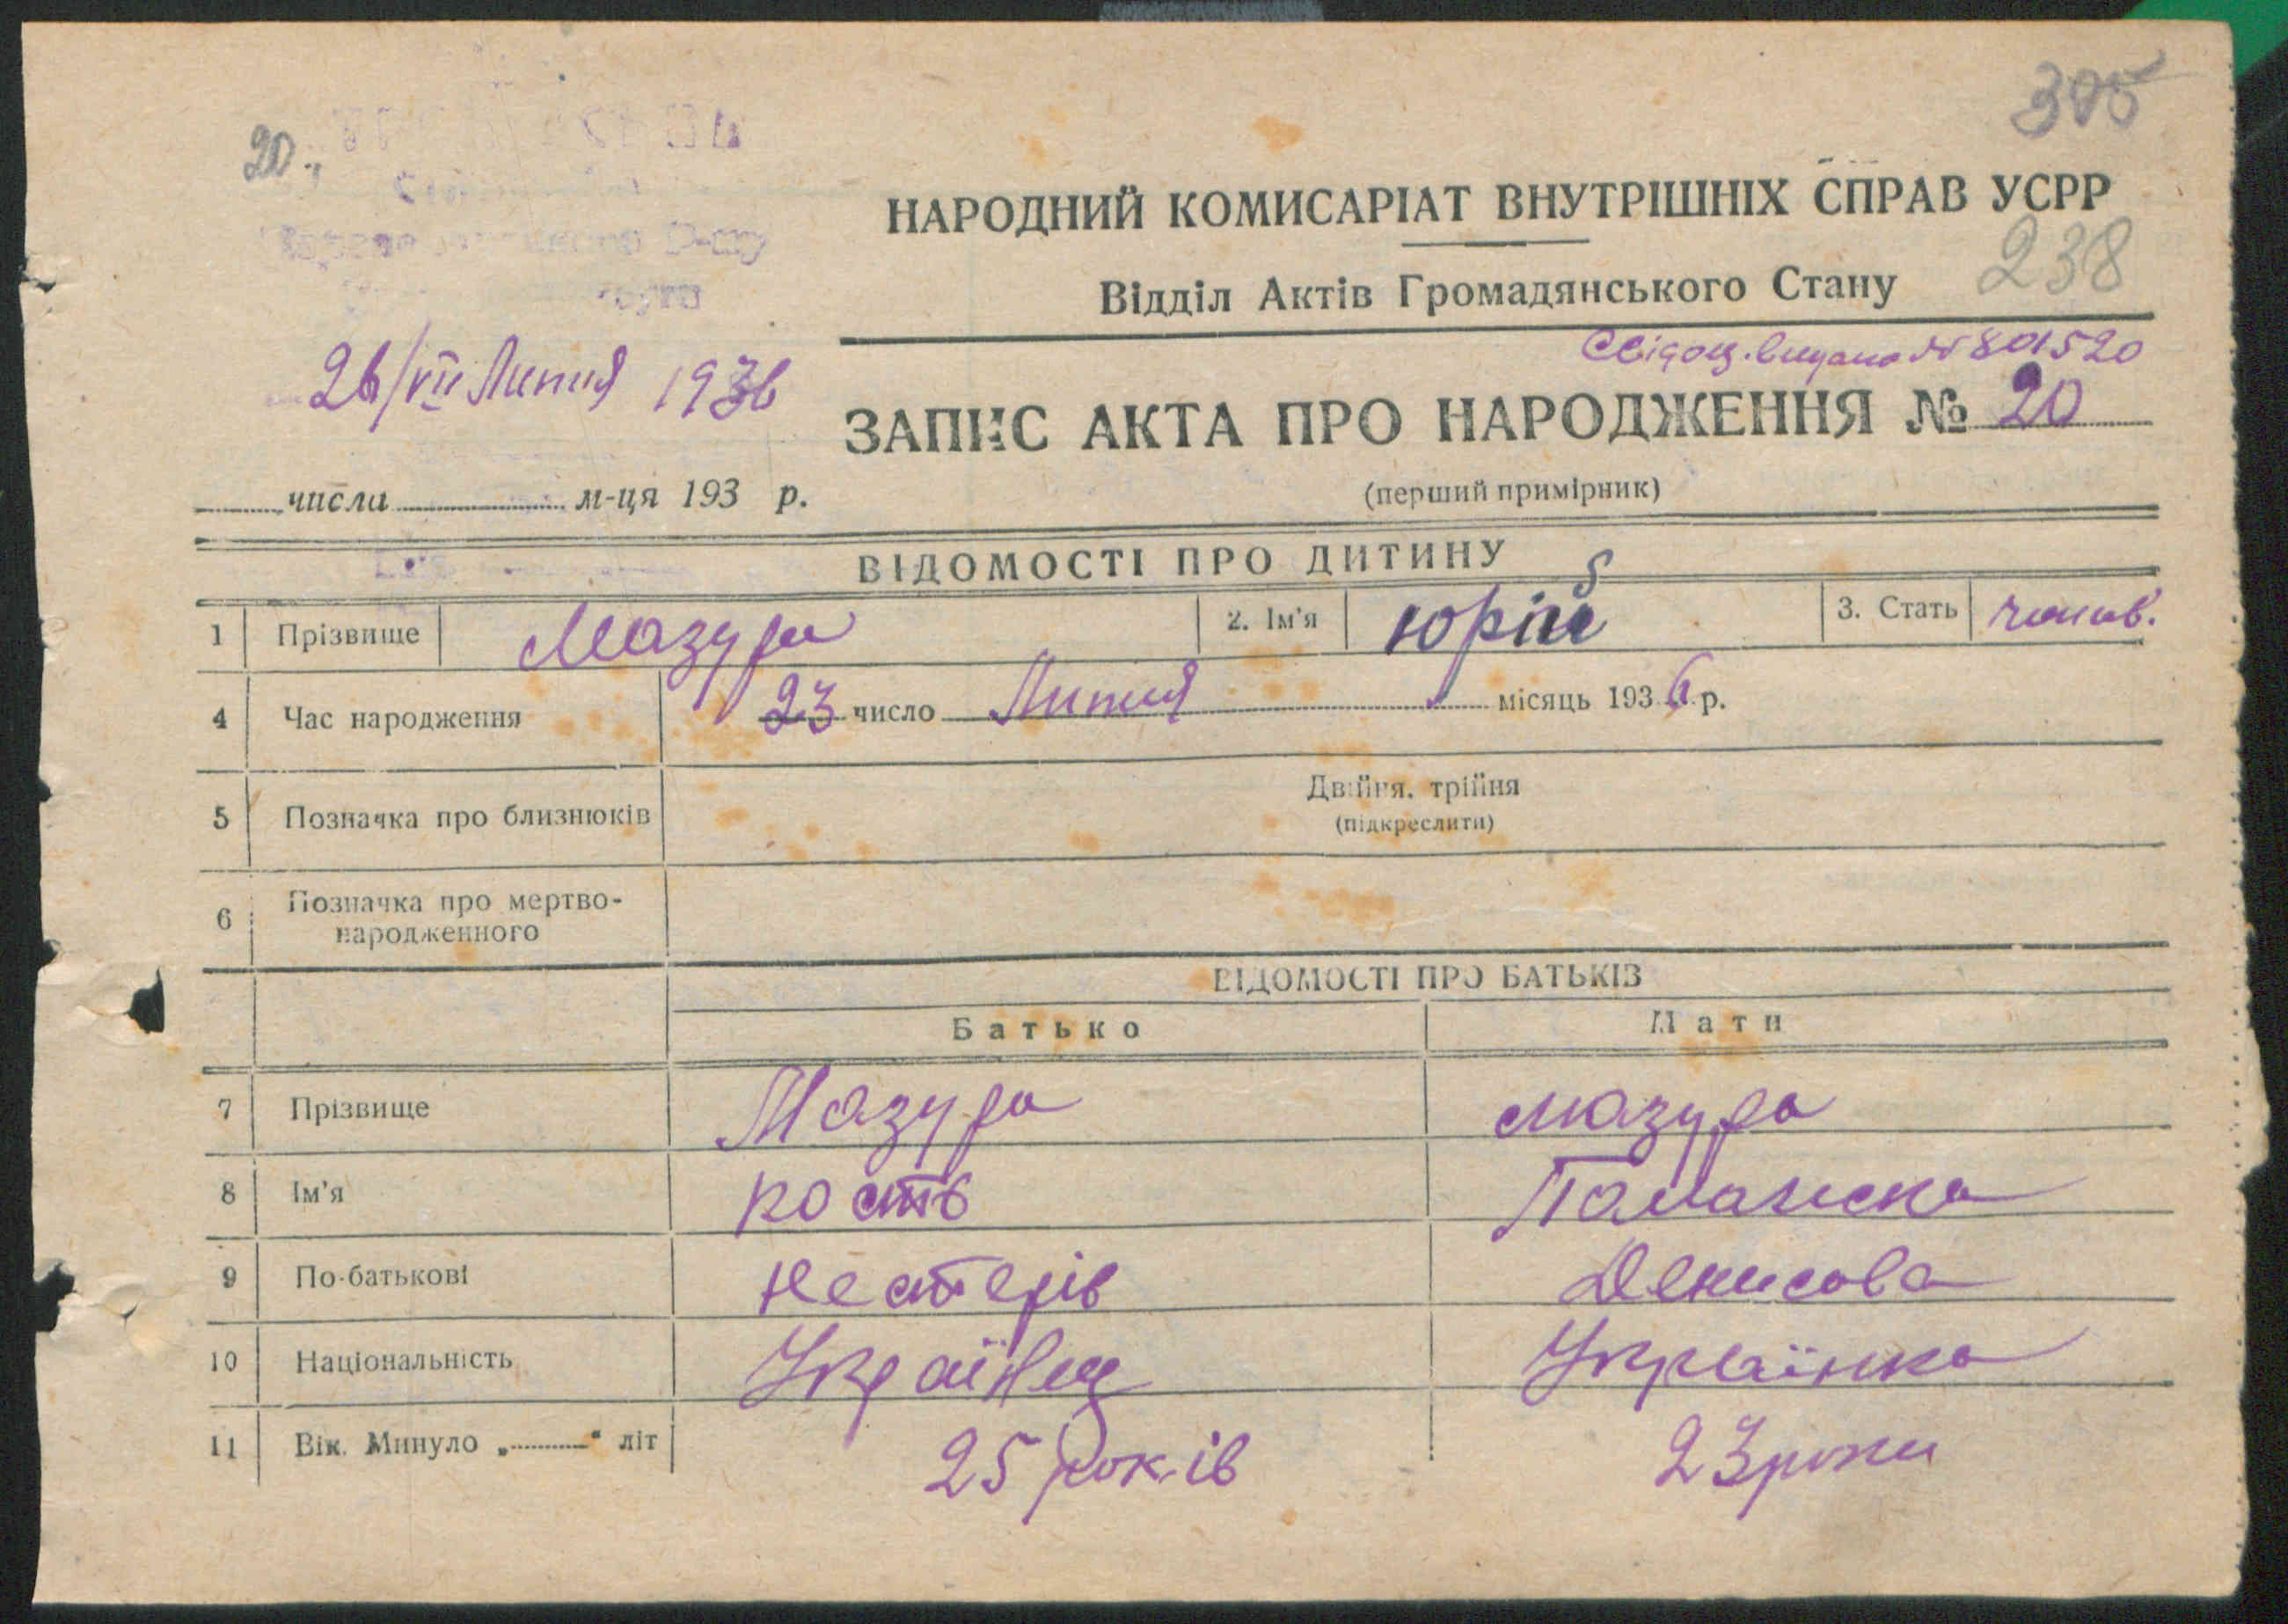 305
20.
НАРОДНИЙ КОМИСАРІАТ ВНУТРІШНІХ СПРАВ УСРР
238
Відділ Актів Громадянського Стану
Свідоц. видано № 801520
26/VII Липня 1936
ЗАПИС АКТА ПРО НАРОДЖЕННЯ № 20
числа м-ця 193 р.
(перший примірник)
ВІДОМОСТІ ПРО ДИТИНУ
1 Прізвище Мазура 2. Ім'я Юрій 3. Стать чолов.
4 Час народження 23 число Липня місяць 1936 р.
5 Позначка про близнюків Двійня, трійня
(підкреслити)
6 Позначка про мертво-
народженного
ВІДОМОСТІ ПРО БАТЬКІВ
Батько Мати
7 Прізвище Мазура Мазура
8 Ім'я Кость Палажка
9 По-батькові Нестерів Денисова
10 Національність Українец Українка
11 Вік. Минуло „ “ літ 25 років 23 роки